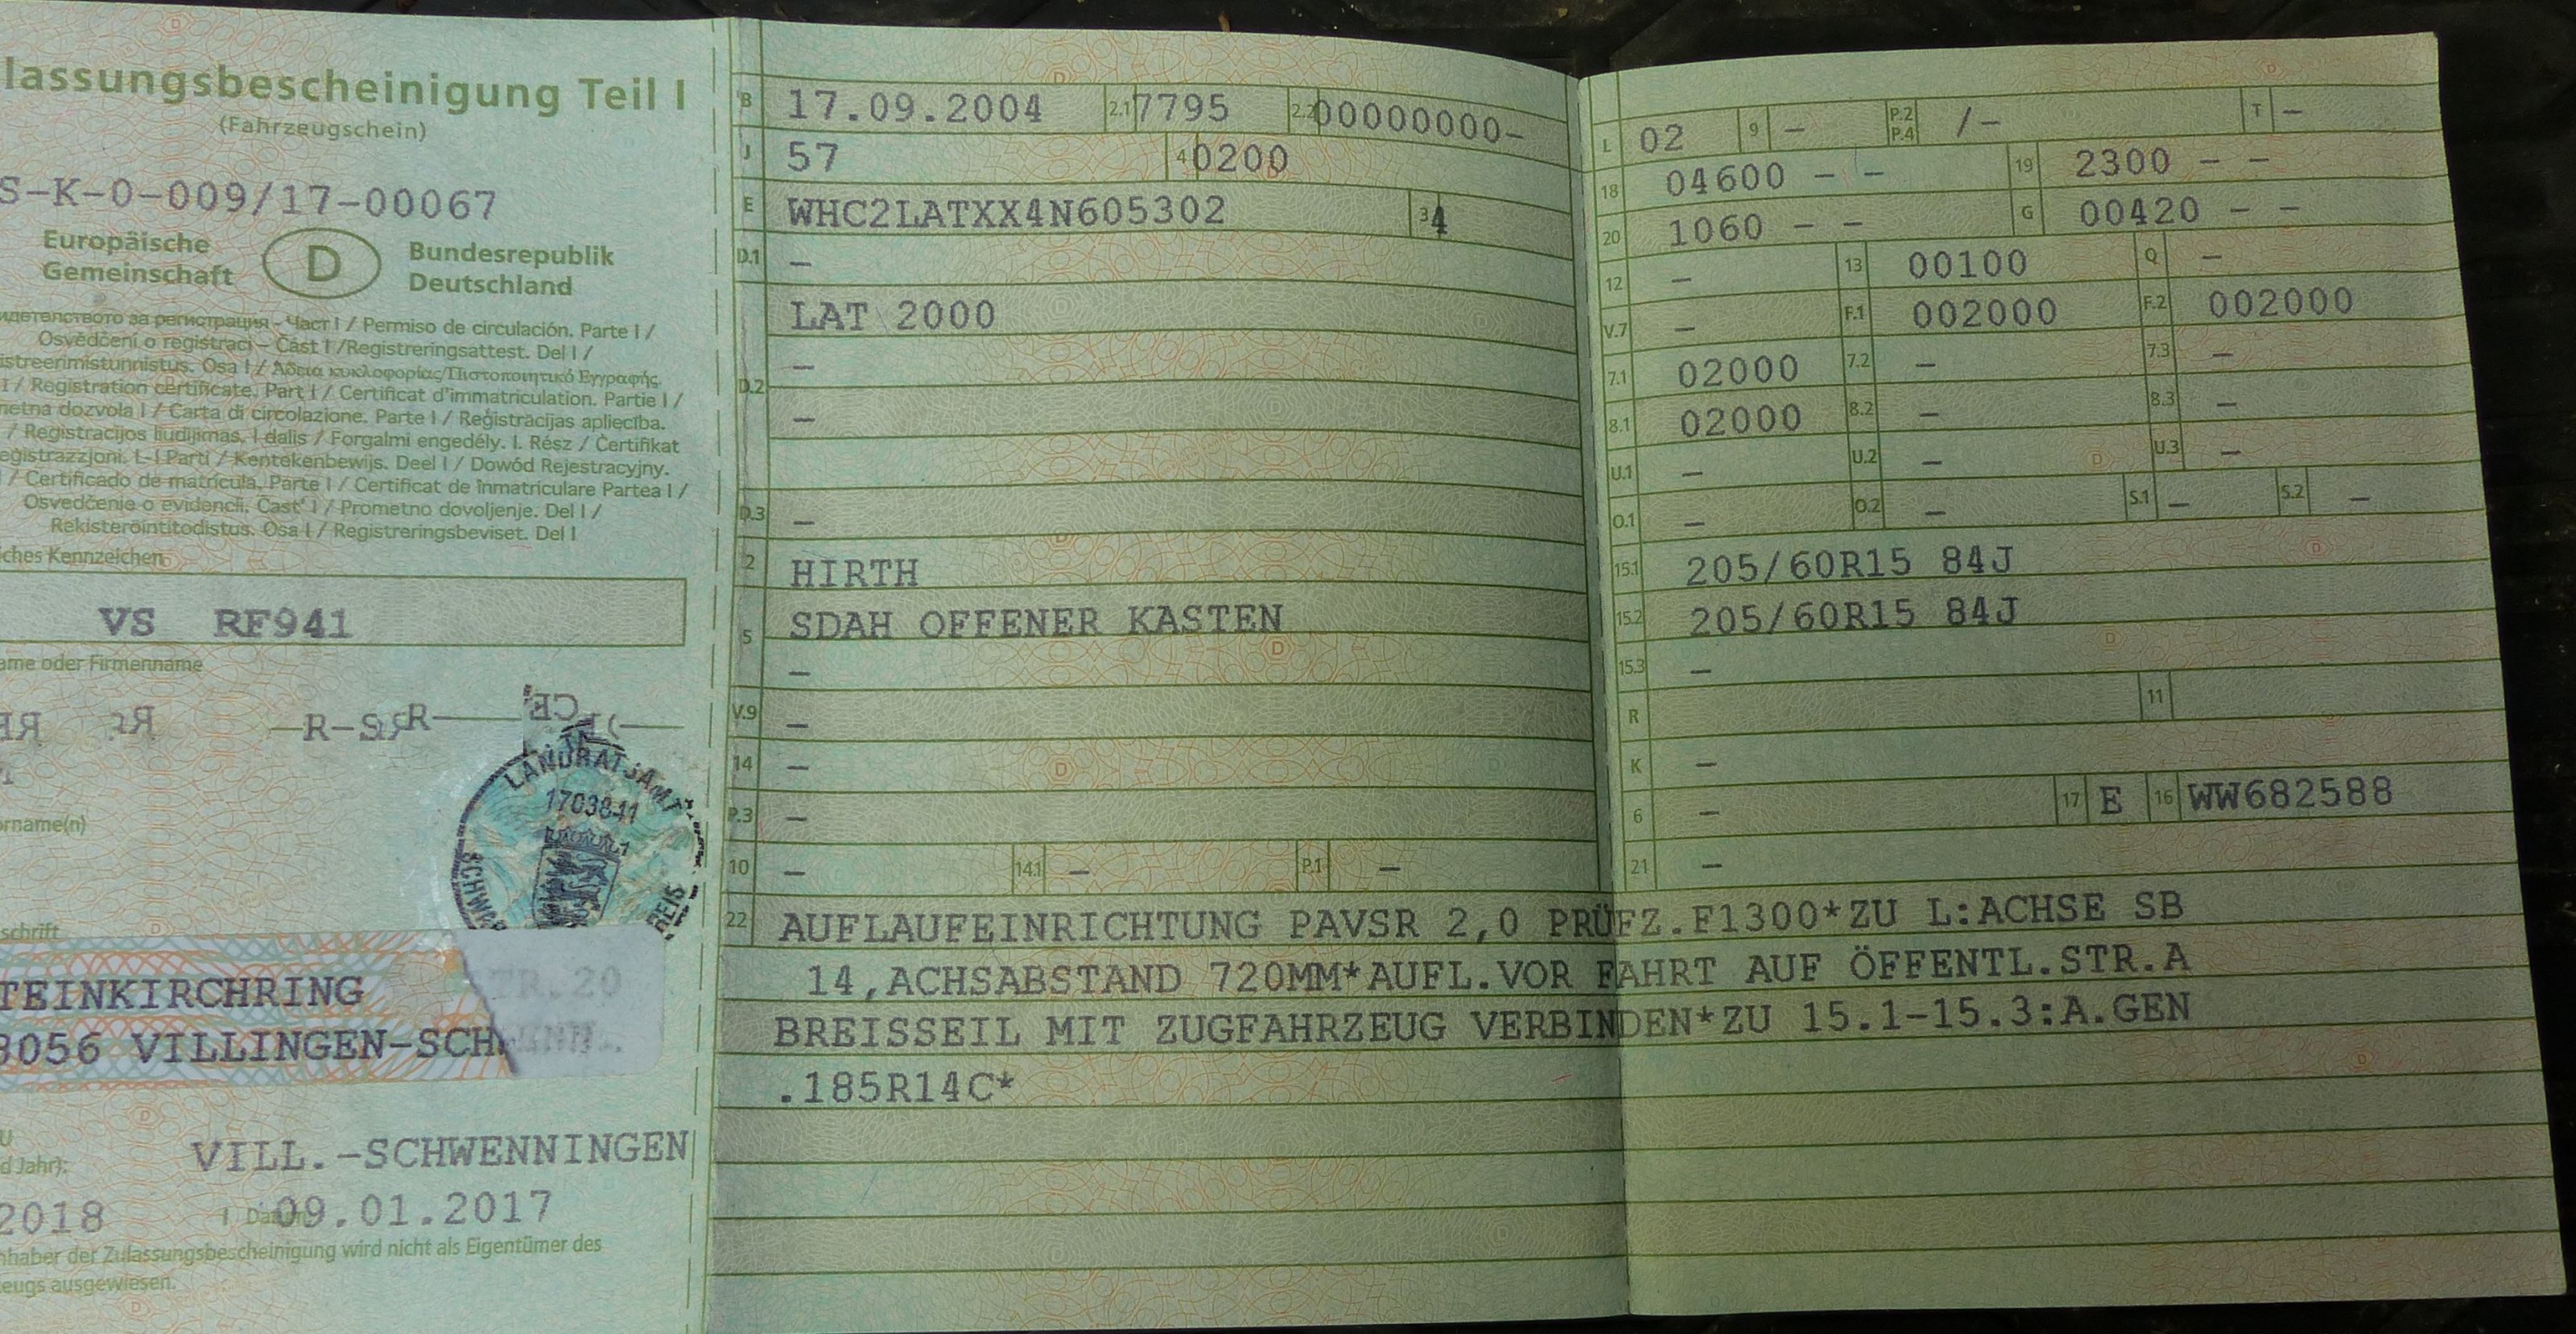 lassungsbescheinigung Teil I
(Fahrzeugschein)
S-K-0-009/17-00067
Europäische Gemeinschaft
D
Bundesrepublik Deutschland
за регистрация - Част I / Permiso de circulación. Parte I /
Osvědčení o registraci – Část I /Registreringsattest. Del I /
istreerimistunnistus. Osa I / Άδεια κυκλοφορίας/Πιστοποιητικό Εγγραφής.
I / Registration certificate. Part I / Certificat d'immatriculation. Partie I /
metna dozvola I / Carta di circolazione. Parte I / Reģistrācijas apliecība.
/ Registracijos liudijimas. I dalis / Forgalmi engedély. I. Rész / Ċertifikat
eġistrazzjoni. L-I Parti / Kentekenbewijs. Deel I / Dowód Rejestracyjny.
/ Certificado de matrícula. Parte I / Certificat de înmatriculare Partea I /
Osvedčenie o evidencii. Časť I / Prometno dovoljenje. Del I /
Rekisteröintitodistus. Osa I / Registreringsbeviset. Del I
iches Kennzeichen
VS RF941
ame oder Firmenname
LANDRATSAMT
1703841
SCHWA
REIS
orname(n)
schrift
TEINKIRCHRING
TR.20
8056 VILLINGEN-SCH
d Jahr):
VILL.-SCHWENNINGEN
2018
09.01.2017
nhaber der Zulassungsbescheinigung wird nicht als Eigentümer des
eugs ausgewiesen.
B 17.09.2004 2.1 7795 2.2 00000000-
J 57 4 0200
E WHC2LATXX4N605302 3 4
D.1 –
LAT 2000
–
D.2
–
D.3 –
2 HIRTH
5 SDAH OFFENER KASTEN
–
V.9 –
14 –
P.3 –
10 – 14.1 – P.1 –
L 02 9 – P.2 P.4 /– T –
18 04600 – – 19 2300 – –
20 1060 – – G 00420 – –
12 – 13 00100 Q –
V.7 – F.1 002000 F.2 002000
7.1 02000 7.2 – 7.3 –
8.1 02000 8.2 – 8.3 –
U.1 – U.2 – U.3 –
O.1 – O.2 – S.1 – S.2 –
15.1 205/60R15 84J
15.2 205/60R15 84J
15.3 –
R 11
K –
6 – 17 E 16 WW682588
21 –
22 AUFLAUFEINRICHTUNG PAVSR 2,0 PRÜFZ.F1300*ZU L:ACHSE SB
14,ACHSABSTAND 720MM*AUFL.VOR FAHRT AUF ÖFFENTL.STR.A
BREISSEIL MIT ZUGFAHRZEUG VERBINDEN*ZU 15.1-15.3:A.GEN
.185R14C*